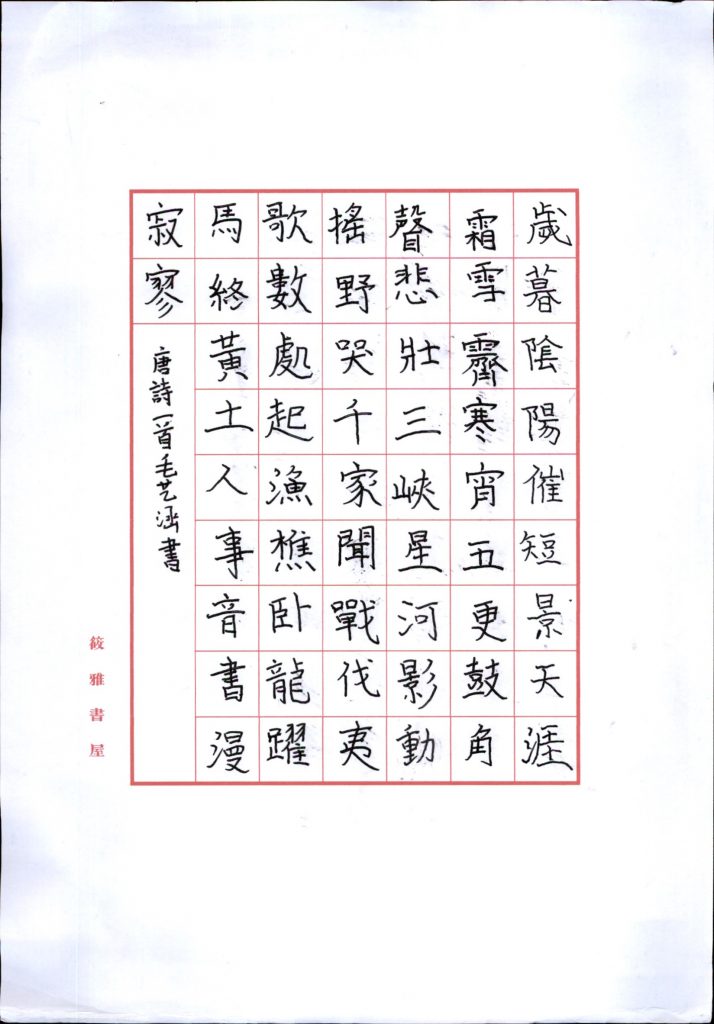 歲暮陰陽催短景天涯
霜雪霽寒宵五更鼓角
聲悲壯三峽星河影動
搖野哭千家聞戰伐夷
歌數處起漁樵卧龍躍
馬終黃土人事音書漫
寂寥
唐詩一首毛艺涵書
筱雅書屋